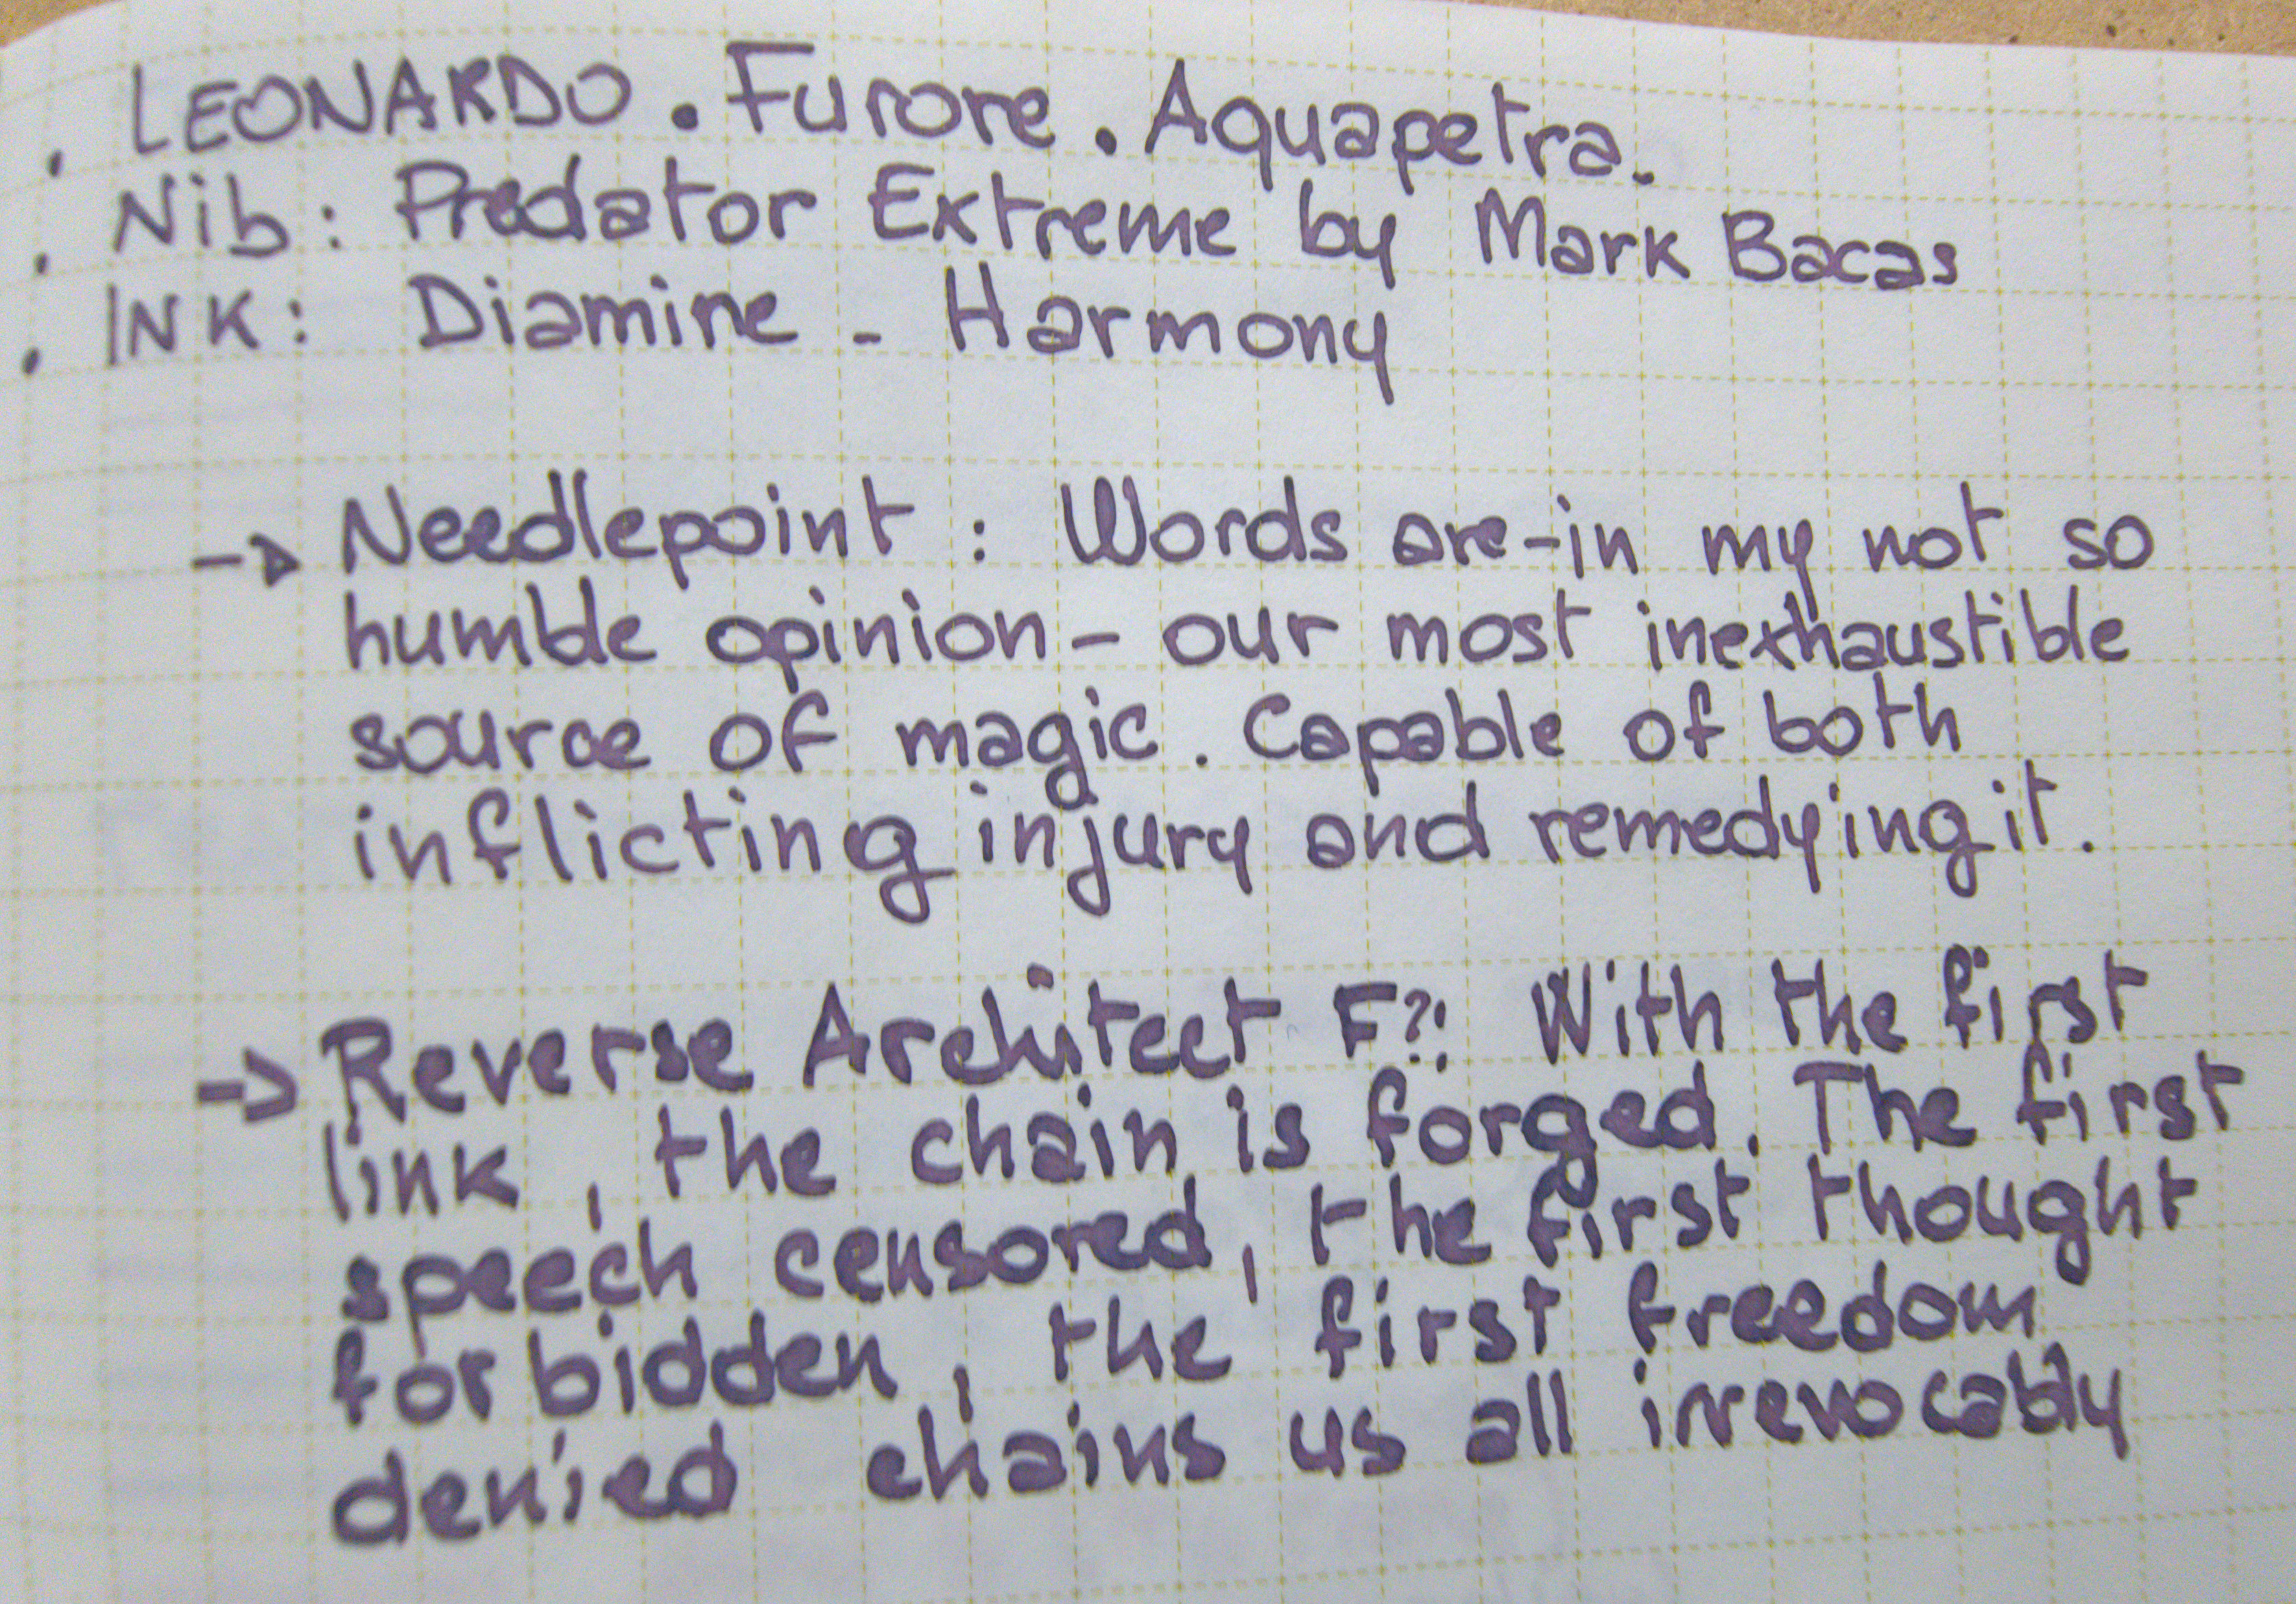 . LEONARDO . Furore . Aquapetra.
. Nib: Predator Extreme by Mark Bacas
. INK: Diamine - Harmony
-> Needlepoint : Words are-in my not so
humble opinion - our most inexhaustible
source of magic. Capable of both
inflicting injury and remedying it.
-> Reverse Architect F?: With the first
link, the chain is forged. The first
speech censored, the first thought
forbidden, the first freedom
denied chains us all irrevocably